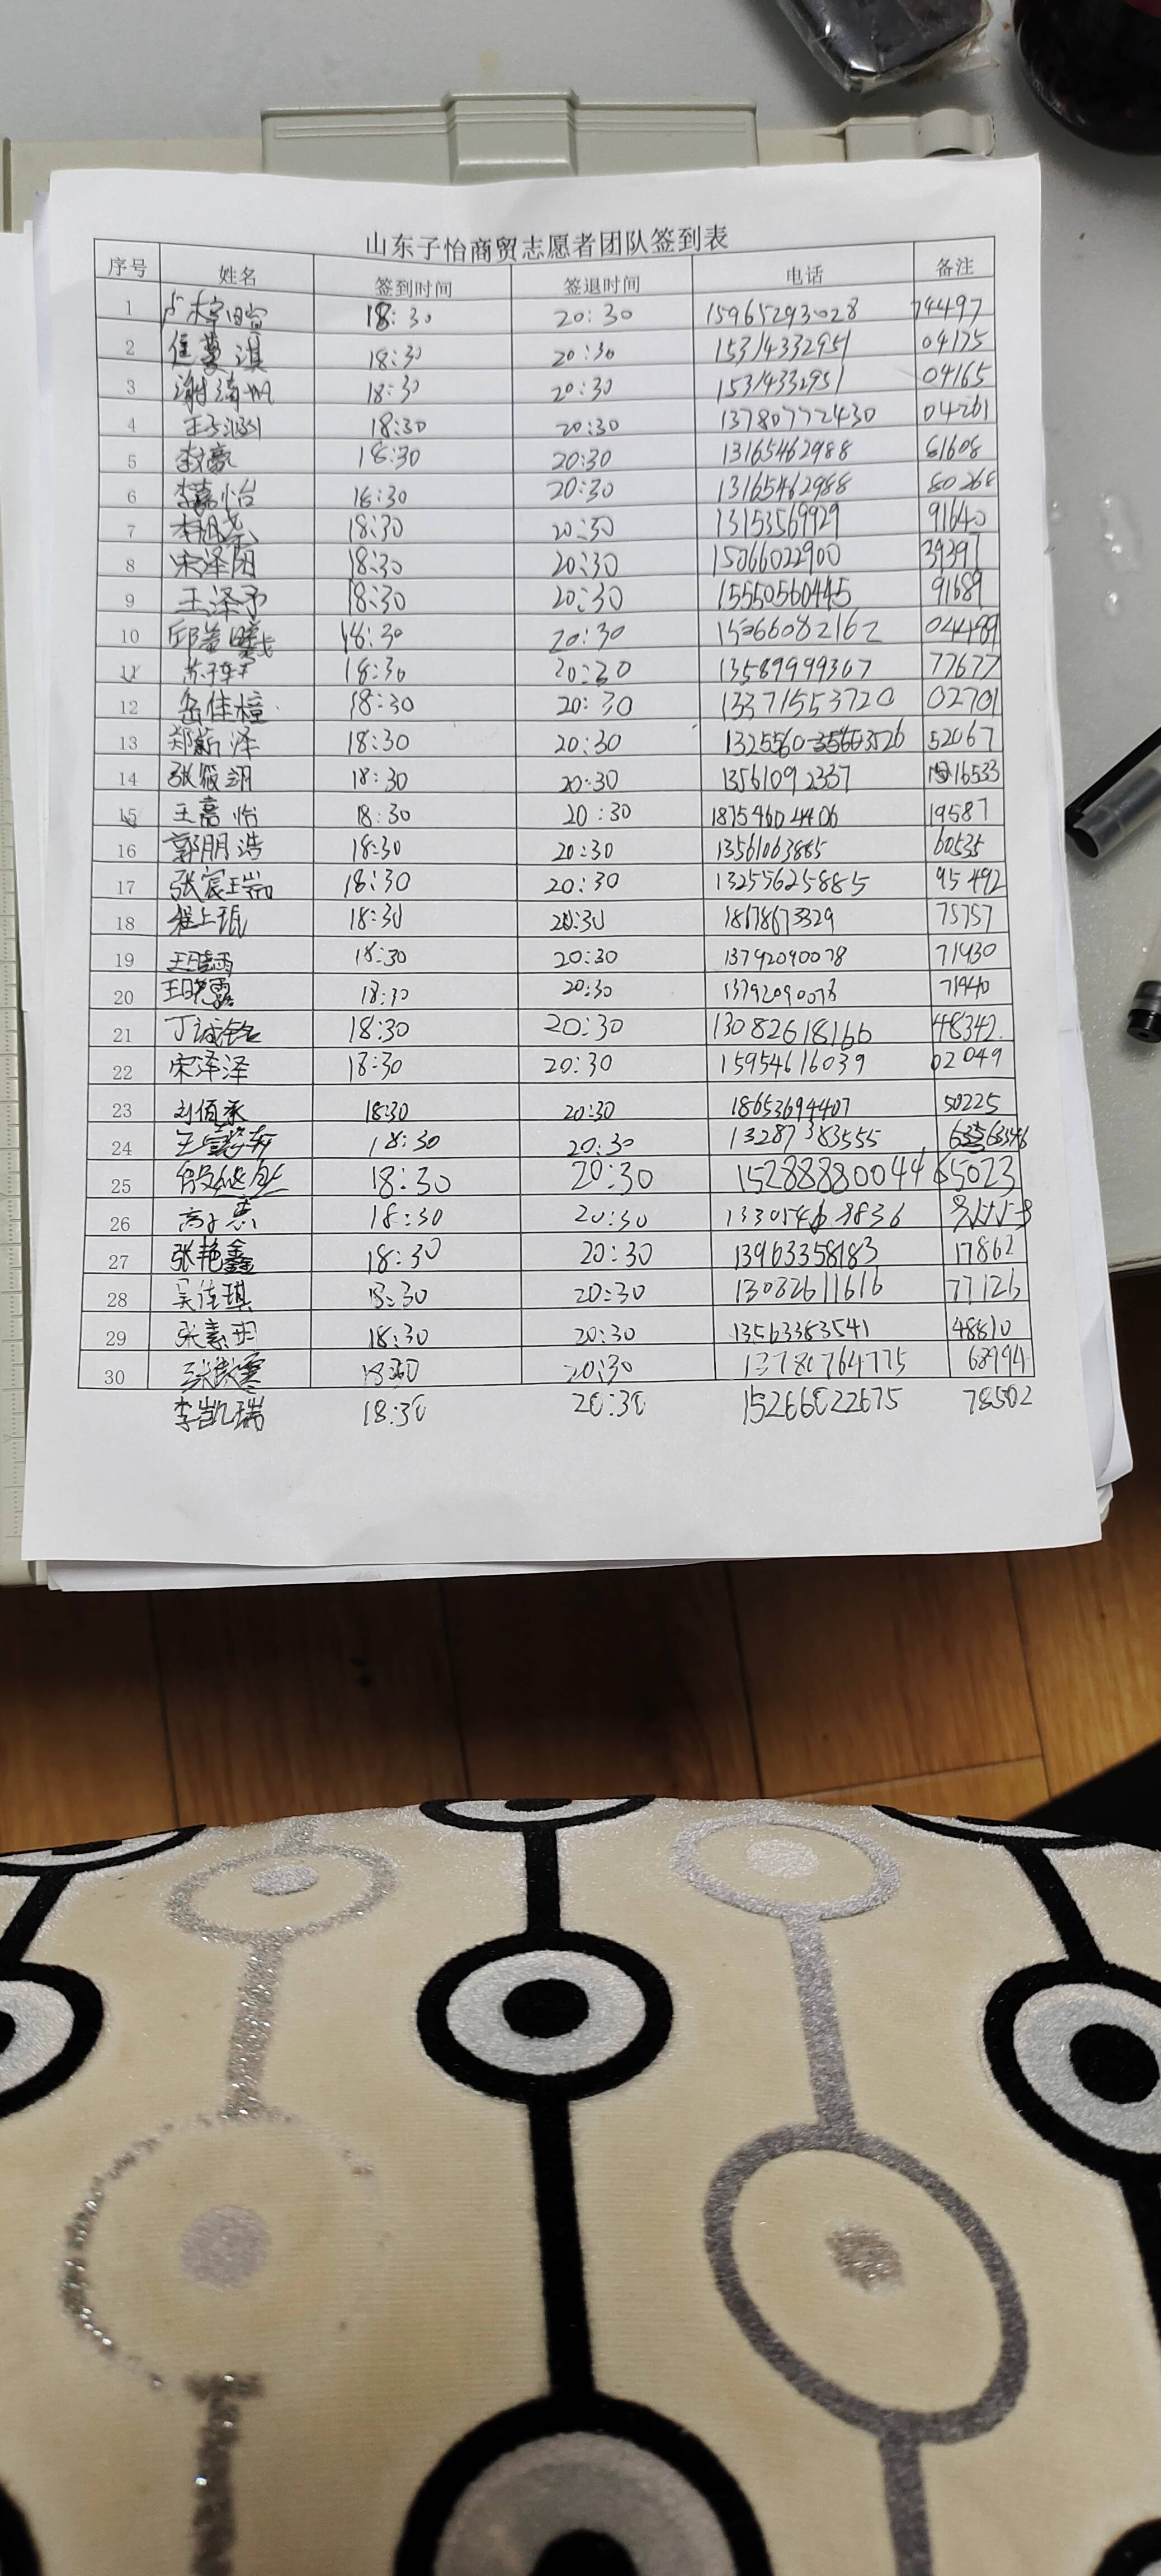 山东子怡商贸志愿者团队签到表
序号 姓名 签到时间 签退时间 电话 备注
1 18:30 20:30 15965293028 74497
2 18:30 20:30 15314332951 04175
3 18:30 20:30 15314332951 04165
4 18:30 20:30 13780772430 04261
5 李豪 18:30 20:30 13165462988 81608
6 李嘉怡 18:30 20:30 13165462988 80268
7 18:30 20:30 13153569929 91640
8 宋泽阳 18:30 20:30 15066022900 39397
9 王泽予 18:30 20:30 15550560445 91689
10 18:30 20:30 15066082162 04489
11 18:30 20:30 13589999307 77677
12 岳佳橦 18:30 20:30 153371553720 02701
13 郑蕲泽 18:30 20:30 52067
14 张筱翊 18:30 20:30 13561092337 16533
15 王嘉怡 18:30 20:30 18754604406 19587
16 郭朋浩 18:30 20:30 13561063885 60535
17 张宸瑞 18:30 20:30 13255625885 95492
18 程上琨 18:30 20:30 18678673329 75757
19 18:30 20:30 13792090078 71430
20 王晓露 18:30 20:30 13792090078 71940
21 丁诚铭 18:30 20:30 13082618166 48342
22 宋泽泽 18:30 20:30 15954616039 02049
23 刘佰承 18:30 20:30 18653694407 50225
24 18:30 20:30 13287383555
25 18:30 20:30 15288880044 65023
26 18:30 20:30
27 张艳鑫 18:30 20:30 13963358183 17862
28 吴佳琪 18:30 20:30 13082611616 77126
29 张素玥 18:30 20:30 13563383541 48810
30 18:30 20:30 13780764775 68994
李凯瑞 18:30 20:30 15266022675 78502